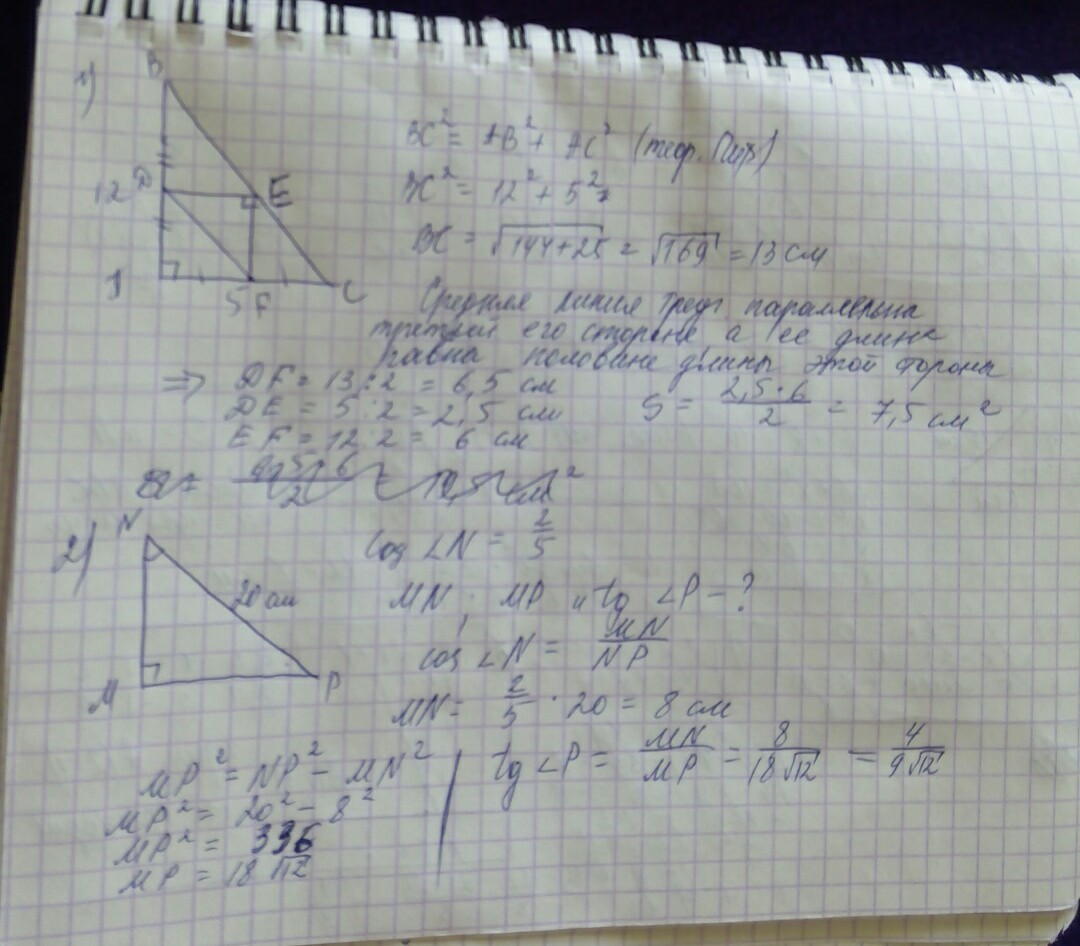 1)
B
12 D
E
5 F
C
BC² = AB² + AC² (теор. Пиф)
BC² = 12² + 5²
BC = √144+25 = √169 = 13 см
Средняя линия треуг параллельна
третьей его стороне а ее длина
равна половине длины этой стороны
⇒ DF = 13 : 2 = 6,5 см
DE = 5 : 2 = 2,5 см
EF = 12 : 2 = 6 см
S = 2,5 · 6 / 2 = 7,5 см²
2)
N
20 см
M
P
cos ∠N = 2/5
MN, MP и tg ∠P - ?
cos ∠N = MN/NP
MN = 2/5 · 20 = 8 см
MP² = NP² - MN²
MP² = 20² - 8²
MP² = 336
MP = 18 √12
tg ∠P = MN/MP = 8/18√12 = 4/9√12